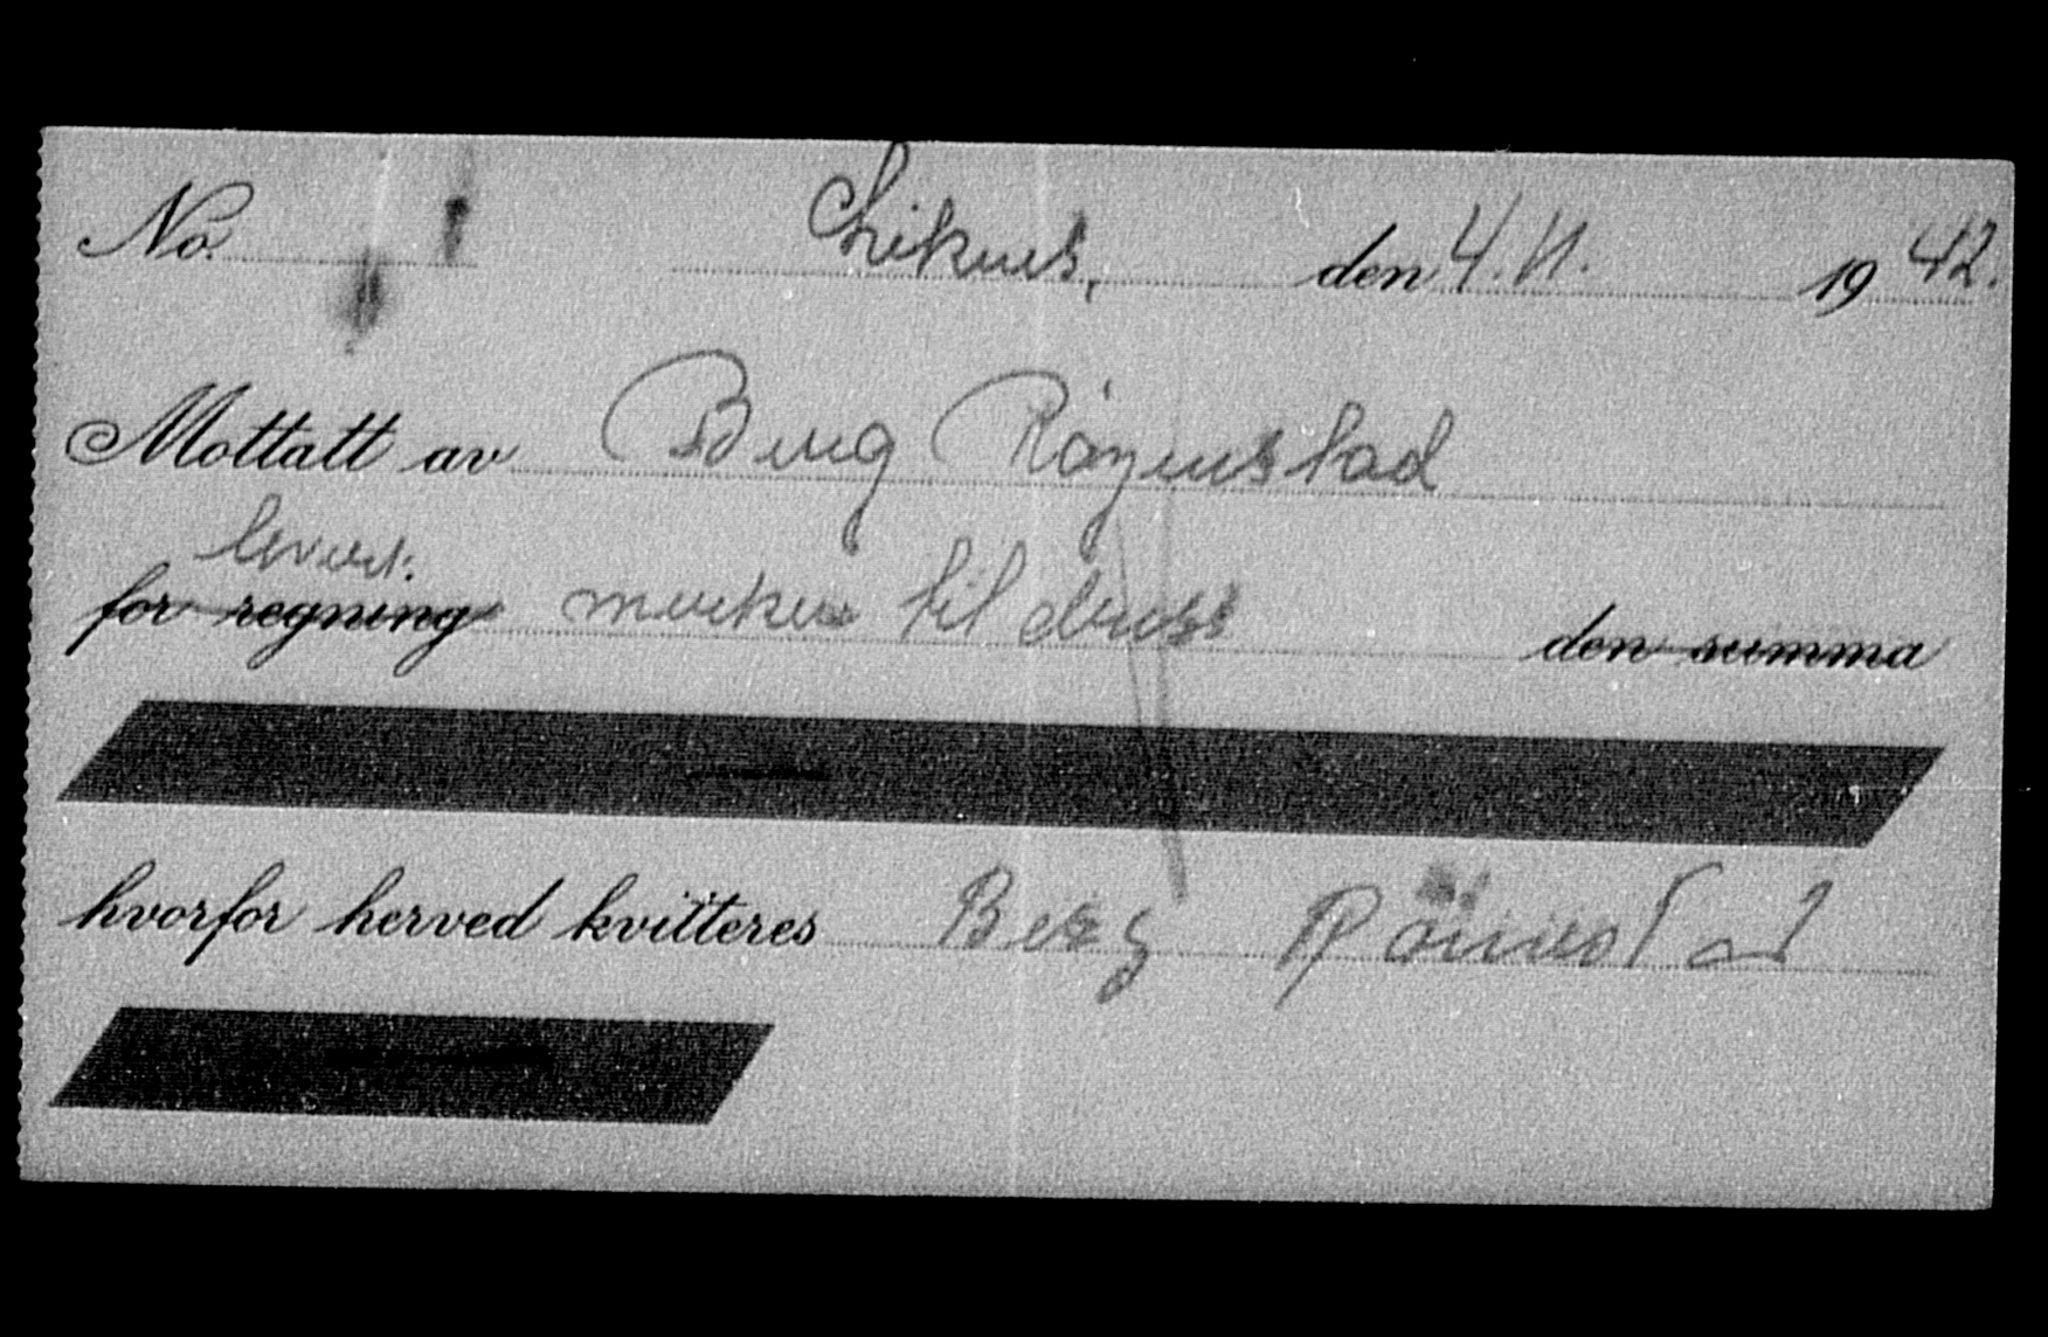 No. Liknes, den 4.11. 1942.
Mottatt av Berg Röyenstad
levert.
for regning merker til dress den summa
hvorfor herved kvitteres Berg